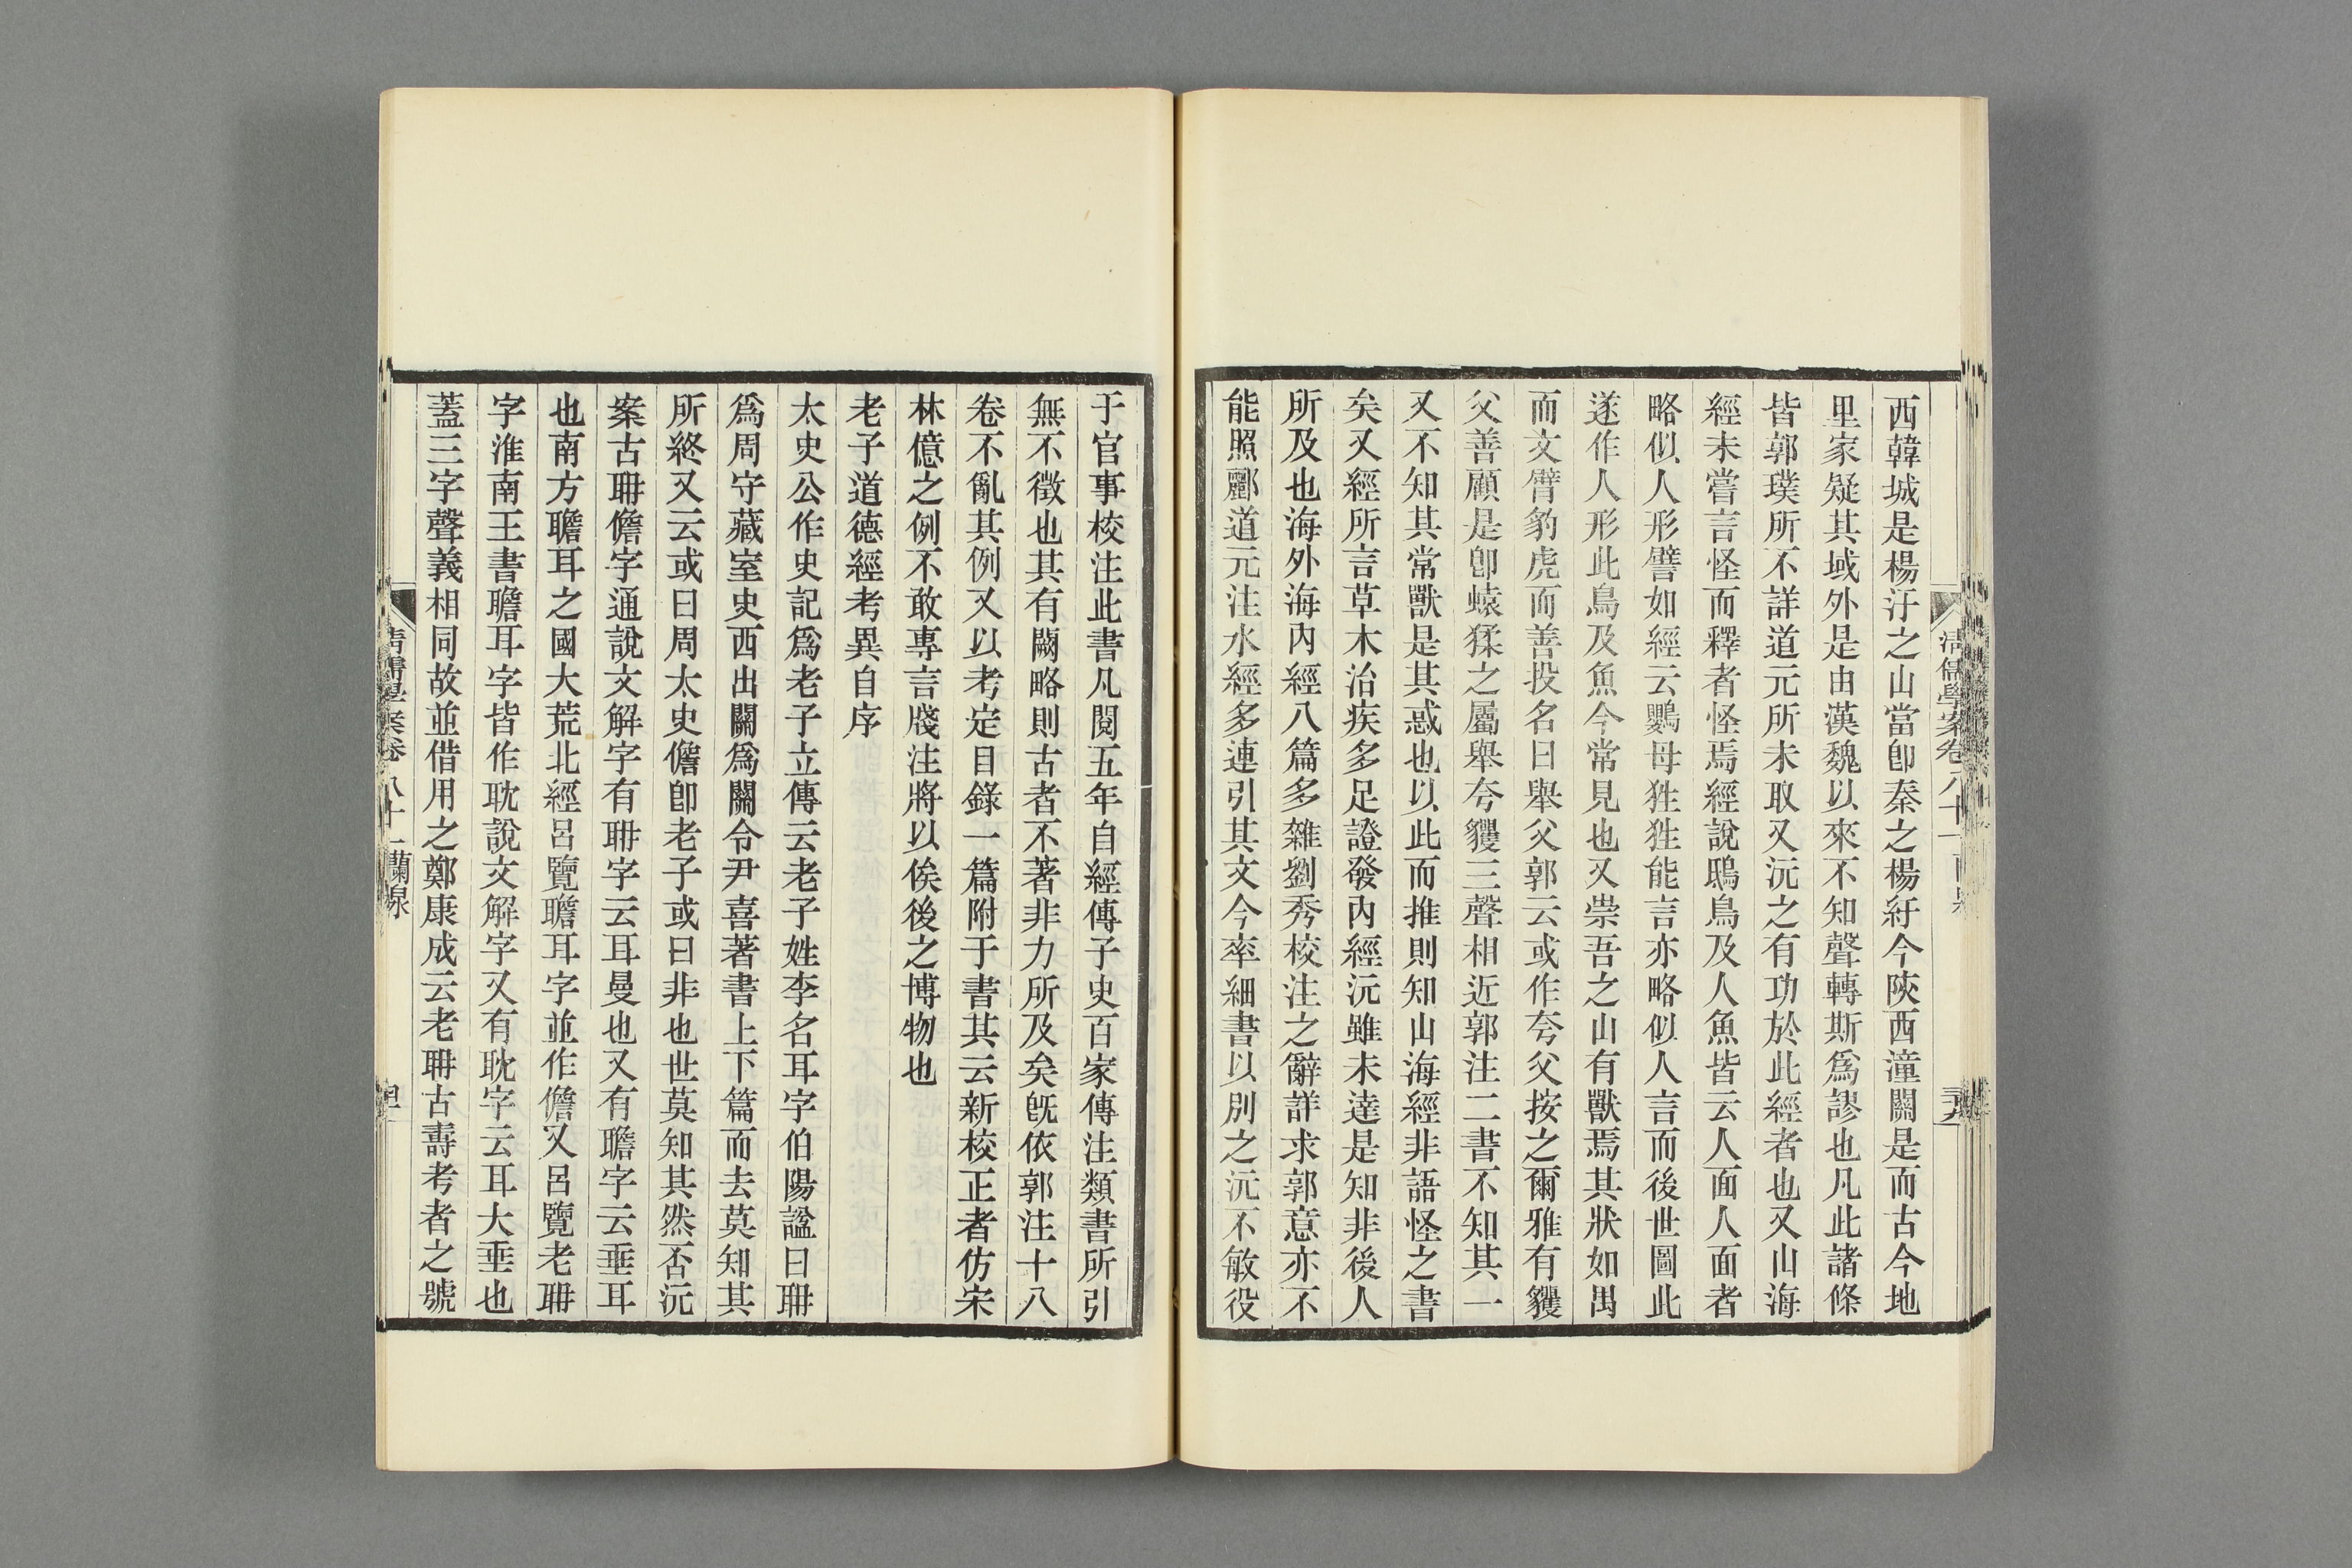 西韓城是楊汙之山當卽秦之楊紆今陝西潼關是而古今地
里家疑其域外是由漢魏以來不知聲轉斯爲謬也凡此諸條
皆郭璞所不詳道元所未取又沅之有功於此經者也又山海
經未嘗言怪而釋者怪焉經說鴟鳥及人魚皆云人面人面者
略似人形譬如經云鸚母狌狌能言亦略似人言而後世圖此
遂作人形此鳥及魚今常見也又崇吾之山有獸焉其狀如禺
而文臂豹虎而善投名曰舉父郭云或作夸父按之爾雅有玃
父善顧是卽蝯猱之屬舉夸玃三聲相近郭注二書不知其一
又不知其常獸是其惑也以此而推則知山海經非語怪之書
矣又經所言草木治疾多足證發內經沅雖未達是知非後人
所及也海外海內經八篇多雜劉秀校注之辭詳求郭意亦不
能照酈道元注水經多連引其文今率細書以別之沅不敏役
于官事校注此書凡閱五年自經傳子史百家傳注類書所引
無不徵也其有闕略則古者不著非力所及矣旣依郭注十八
卷不亂其例又以考定目錄一篇附于書其云新校正者仿宋
林億之例不敢專言牋注將以俟後之博物也
老子道德經考異自序
太史公作史記爲老子立傳云老子姓李名耳字伯陽諡曰耼
爲周守藏室史西出關爲關令尹喜著書上下篇而去莫知其
所終又云或曰周太史儋卽老子或曰非也世莫知其然否沅
案古耼儋字通說文解字有耼字云耳曼也又有瞻字云垂耳
也南方瞻耳之國大荒北經呂覽瞻耳字並作儋又呂覽老耼
字淮南王書瞻耳字皆作耽說文解字又有耽字云耳大垂也
蓋三字聲義相同故並借用之鄭康成云老耼古壽考者之號
清儒學案卷八十一 蘭泉